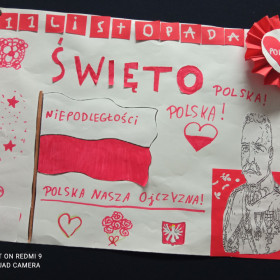 11 LISTOPADA
ŚWIĘTO
POLSKA!
POLSKA!
NiEPODLEGŁOŚCi
POLSKA NASZA OJCZYZNA!
SHOT ON REDMI 9
QUAD CAMERA